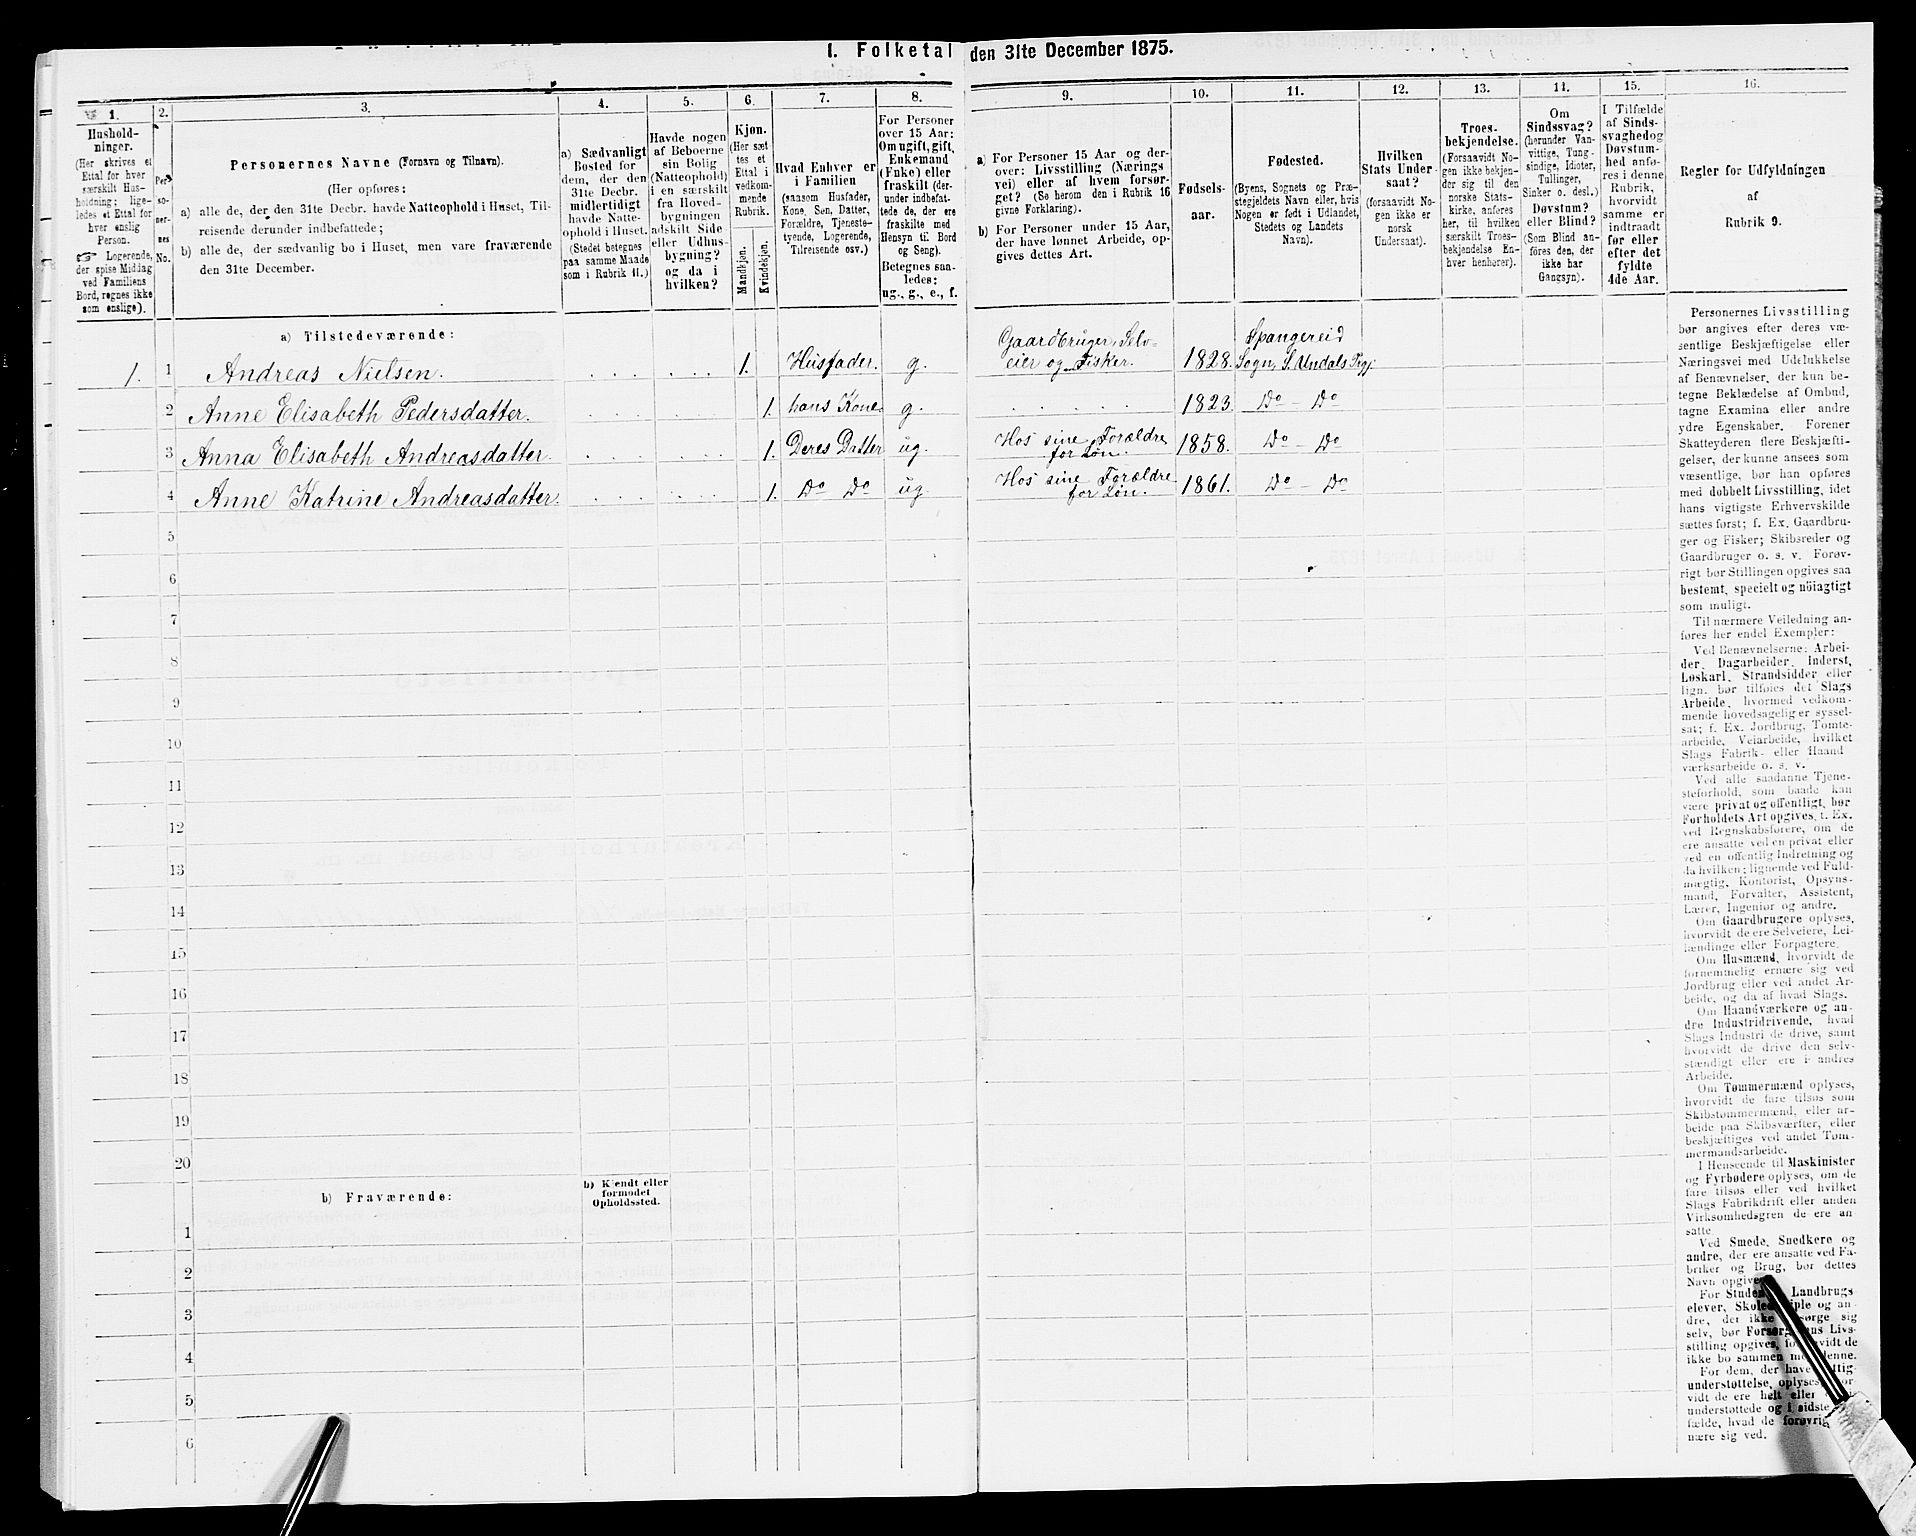 I. Folketal den 31te December 1875.
1.
Hushold-
ninger.
(Her skrives et
Ettal for hver
særskilt Hus-
holdning; lige-
ledes et Ettal for
hver enslig
Person.
☞ Logerende,
der spise Middag
ved Familiens
Bord, regnes ikke
som enslige).
2.
Per-
so-
ner-
nes
No.
3.
Personernes Navne (Fornavn og Tilnavn).
(Her opføres:
a) alle de, der den 31te Decbr. havde Natteophold i Huset, Til-
reisende derunder indbefattede;
b) alle de, der sædvanlig bo i Huset, men vare fraværende
den 31te December.
4.
a) Sædvanligt
Bosted for
dem, der den
31te Decbr.
midlertidigt
havde Natte-
ophold i Huset.
(Stedet betegnes
paa samme Maade
som i Rubrik 11.)
5.
Havde nogen
af Beboerne
sin Bolig
(Natteophold)
i en særskilt
fra Hoved-
bygningen
adskilt Side
eller Udhus-
bygning?
og da i
hvilken?
6.
Kjøn.
(Her sæt
tes et
Ettal i
vedkom-
mende
Rubrik.
Mandkjøn.
Kvindekjøn.
7.
Hvad Enhver er
i Familien
(saasom Husfader,
Kone, Søn, Datter,
Forældre, Tjeneste-
tyende, Logerende,
Tilreisende osv.)
8.
For Personer
over 15 Aar:
Om ugift, gift,
Enkemand
(Enke) eller
fraskilt (der-
under indbefat-
tede de, der ere
fraskilte med
Hensyn til Bord
og Seng).
Betegnes saa-
ledes:
ug., g., e., f.
9.
a) For Personer 15 Aar og der-
over: Livsstilling (Nærings
vei) eller af hvem forsør-
get? (Se herom den i Rubrik 16
givne Forklaring).
b) For Personer under 15 Aar,
der have lønnet Arbeide, op-
gives dettes Art.
10.
Fødsels-
aar.
11.
Fødested.
(Byens, Sognets og Præ-
stegjeldets Navn eller, hvis
Nogen er født i Udlandet,
Stedets og Landets
Navn).
12.
Hvilken
Stats Under-
saat?
(forsaavidt No-
gen ikke er
norsk
Undersaat).
13.
Troes-
bekjendelse.
(Forsaavidt No-
gen ikke bekjen-
der sig til den
norske Stats-
kirke, anføres
her, til hvilken
særskilt Troes-
bekjendelse En-
hver henhører).
14.
Om
Sindssvag?
(herunder Van-
vittige, Tung-
sindige, Idioter,
Tullinger,
Sinker o. desl.)
Døvstum?
eller Blind?
(Som Blind an-
føres den, der
ikke har
Gangsyn).
15.
I Tilfælde
af Sinds-
svaghed og
Døvstum-
hed anfø-
res i denne
Rubrik,
hvorvidt
samme er
indtraadt
før eller
efter det
fyldte
4de Aar.
16.
Regler for Udfyldningen
af
Rubrik 9.
a) Tilstedeværende:
1. 1 Andreas Nielsen. 1. Husfader. g. Gaardbruger, Selv-
eier og Fisker. 1828. Spangereid
Sogn, S. Undals Pgj.
2 Anne Elisabeth Pedersdatter. 1. hans Kone. g. 1823. Do - Do
3 Anna Elisabeth Andreasdatter. 1. Deres Datter ug. Hos sine Forældre
for Løn. 1858. Do - Do
4 Anne Katrine Andreasdatter. 1. Do Do ug. Hos sine Forældre
for Løn. 1861. Do - Do
5
6
7
8
9
10
11
12
13
14
15
16
17
18
19
20
b) Fraværende:
b) Kjendt eller
formodet
Opholdssted.
1
2
3
4
5
6
Personernes Livsstilling
bør angives efter deres væ-
sentlige Beskjæftigelse eller
Næringsvei med Udelukkelse
af Benævnelser, der kun be-
tegne Beklædelse af Ombud,
tagne Examina eller andre
ydre Egenskaber. Forener
Skatteyderen flere Beskjæfti-
gelser, der kunne ansees som
væsentlige, bør han opføres
med dobbelt Livsstilling, idet
hans vigtigste Erhvervskilde
sættes først; f. Ex. Gaardbru-
ger og Fisker; Skibsreder og
Gaardbruger o. s. v. Forøv-
rigt bør Stillingen opgives saa
bestemt, specielt og nöiagtigt
som muligt.
Til nærmere Veiledning an-
føres her endel Exempler:
Ved Benævnelserne: Arbei-
der, Dagarbeider, Inderst,
Løskarl, Strandsidder eller
lign. bør tilføies det Slags
Arbeide, hvormed vedkom-
mende hovedsagelig er syssel-
sat; f. Ex. Jordbrug, Tomte-
arbeide, Veiarbeide, hvilket
Slags Fabrik- eller Haand
værksarbeide o. s. v.
Ved alle saadanne Tjene-
steforhold, som baade kan
være privat og offentligt, bør
Forholdets Art opgives, f. Ex.
ved Regnskabsførere, om de
ere ansatte ved en privat eller
ved en offentlig Indretning og
da hvilken; lignende ved Fuld-
mægtig, Kontorist, Opsyns-
mand, Forvalter, Assistent,
Lærer, Ingeniør og andre.
Om Gaardbrugere oplyses,
hvorvidt de ere Selveiere, Lei-
lændinge eller Forpagtere.
Om Husmænd, hvorvidt de
fornemmelig ernære sig ved
Jordbrug eller ved andet Ar-
beide, og da af hvad Slags.
Om Haandværkere og an-
dre Industridrivende, hvad
Slags Industri de drive, samt
hvorvidt de drive den selv-
stændigt eller ere i andres
Arbeide.
Om Tømmermænd oplyses,
hvorvidt de fare tilsøs som
Skibstømmermænd, eller ar-
beide paa Skibsværfter, eller
beskjæftiges ved andet Tøm-
mermandsarbeide.
I Henseende til Maskinister
og Fyrbødere oplyses, om de
fare tilsøs eller ved hvilket
Slags Fabrikdrift eller anden
Virksomhedsgren de ere an-
satte.
Ved Smede, Snedkere og
andre, der ere ansatte ved Fa-
briker og Brug, bør dettes
Navn opgives
For Landbrugs
elever, og an-
dre, der ikke sig
selv, bør Livs-
stilling opgives, de
ikke bo sammen denne.
For dem, der have
understøttelse, oplyses,
vidt de ere helt eller
understøttede og i sidste
fælde, hvad de forøvrig
nære sig ved.